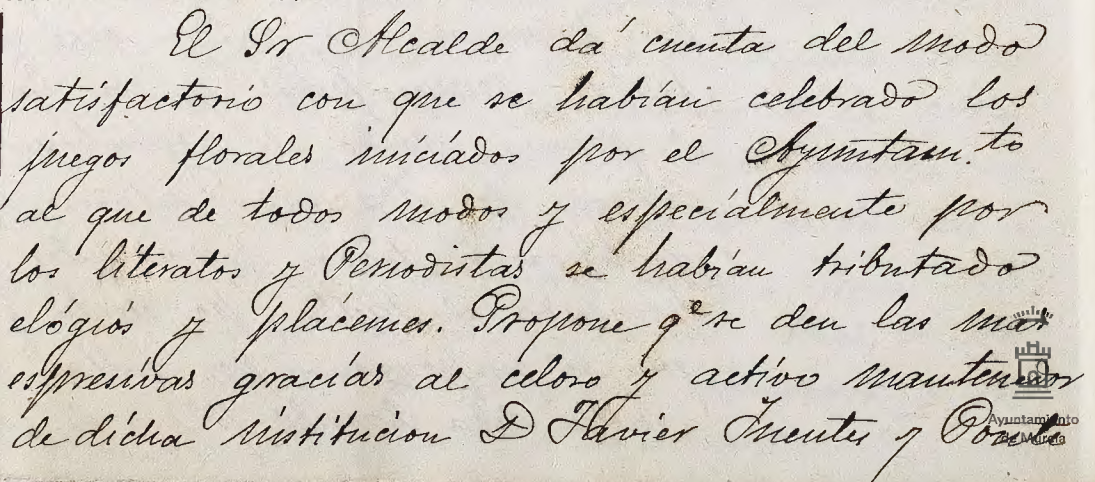 El Sr Alcalde dá cuenta del modo
satisfactorio con que se habían celebrado los
juegos florales iniciados por el Ayuntam.to
al que de todos modos y especialmente por
los literatos y Periodistas se habían tributado
elógios y plácemes. Propone qe se den las mas
espresivas gracias al celoso y activo mantenedor
de dicha institucion D Javier Fuentes y Ponte
Ayuntamiento
de Murcia